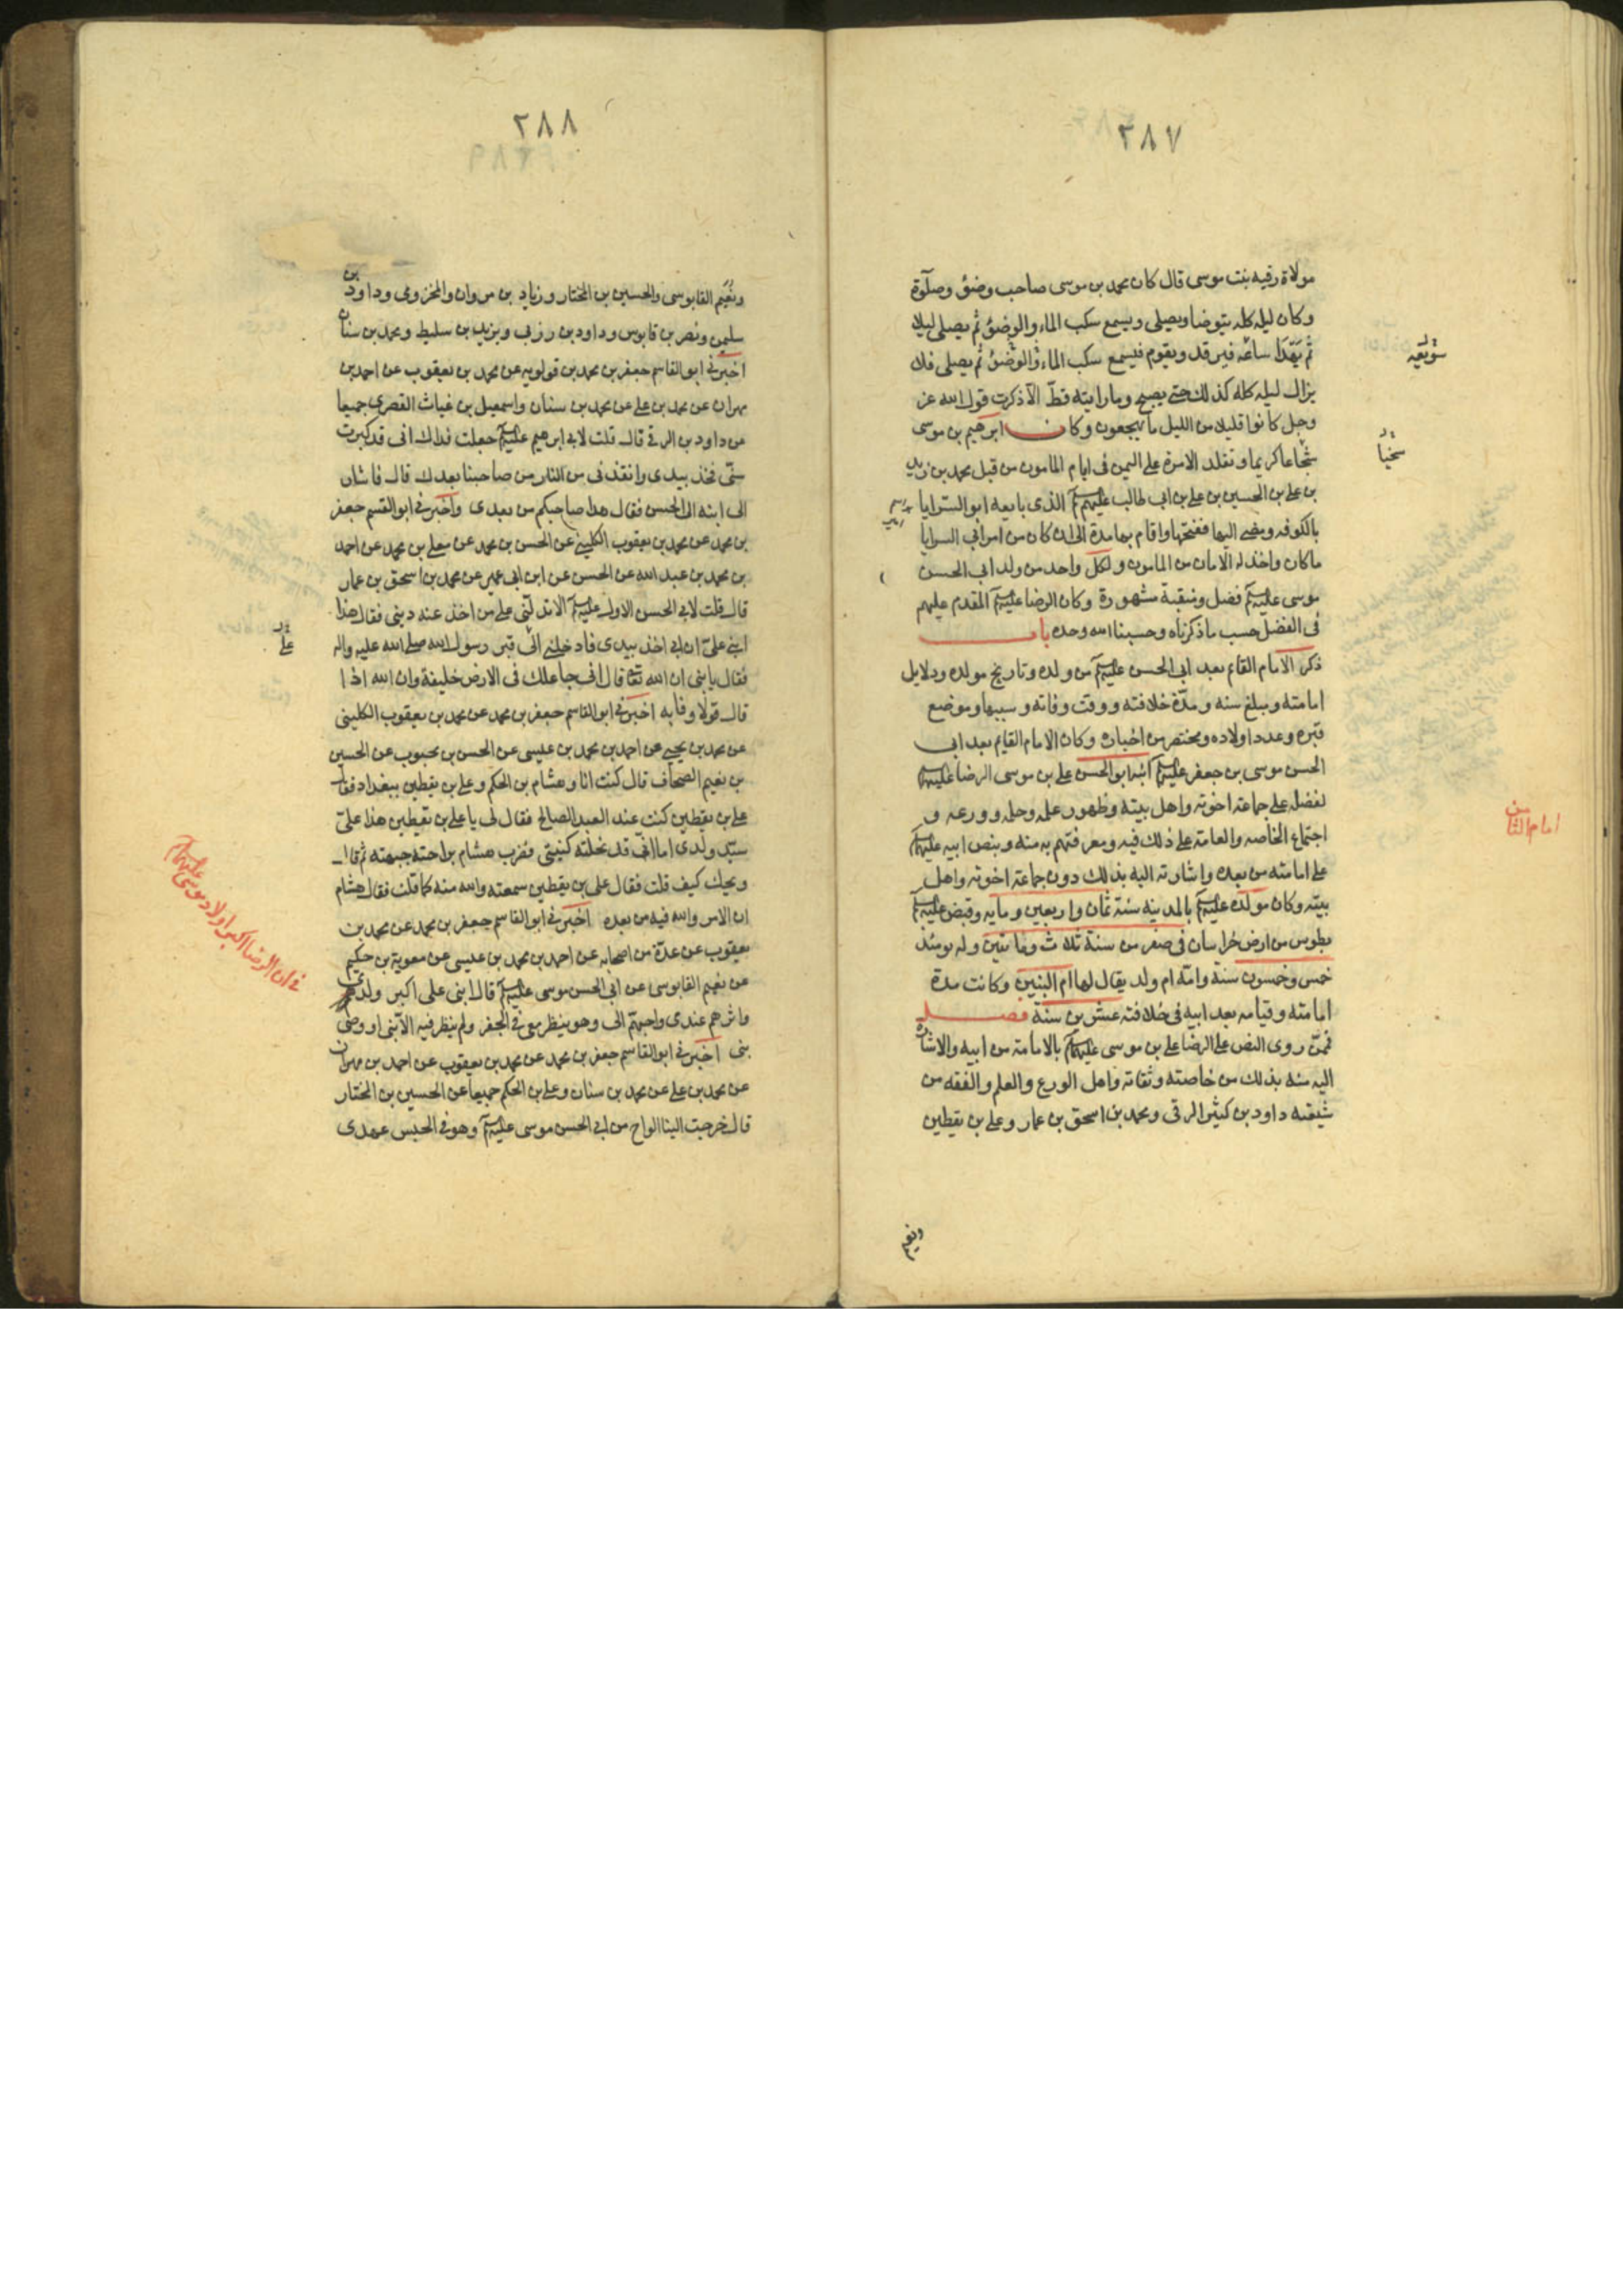 ٢٨٧
مولاة رقيه بنت موسى قال كان محمد بن موسى صاحب وضؤ وصلوة
وكان ليله كله يتوضا ويصلى ويسمع سكب الماء والوضؤ ثم يصلى ليلا
ثم يهدا ساعه فيرقد ويقوم فيسمع سكب الماء والوضؤ ثم يصلى فلا
سويعه
يزال ليله كله كذلك حتى يصبح وما رايته قط الا ذكرت قول الله عز
وجل كانوا قليلا من الليل ما يهجعون وكان ابرهيم بن موسى
سخيا
شجاعا كريما وتقلد الامرة على اليمن فى ايام المامون من قبل محمد بن زيد
بن على بن الحسين بن على بن ابى طالب عليهم الذى بايعه ابو السرايا
بالكوفه ومضى اليها ففتحها واقام بها مدة الى ان كان من امر ابى السرايا
ما كان واخذ له الامان من المامون ولكل واحد من ولد ابى الحسن
موسى عليه فضل ومنقبة مشهورة وكان الرضا عليه المقدم عليهم
فى الفضل حسب ما ذكرناه وحسبنا الله وحده باب
ذكر الامام القائم بعد ابى الحسن عليه من ولده وتاريخ مولده ودلايل
امامته ومبلغ سنه ومدة خلافته ووقت وفاته وسببها وموضع
قبره وعدد اولاده ومختصر من اخباره وكان الامام القايم بعد ابى
الحسن موسى بن جعفر عليه ابنه ابو الحسن على بن موسى الرضا عليه
لفضله على جماعة اخوته واهل بيته وظهور علمه وحلمه وورعه و
امام الثامن
اجتماع الخاصه والعامة على ذلك فيه ومعرفتهم به منه وبنص ابيه عليه
على امامته من بعده واشارته اليه بذلك دون جماعة اخوته واهل
بيته وكان مولده عليه بالمدينه سنة ثمان واربعين ومايه وقبض عليه
بطوس من ارض خراسان فى صفر من سنة ثلاث ومائتين وله يومئذ
خمس وخمسون سنة وامه ام ولد يقال لها ام البنين وكانت مدة
امامته وقيامه بعد ابيه فى خلافته عشرين سنة فصل
فممن روى النص على الرضا على بن موسى عليه بالامامة من ابيه والاشارة
اليه منه بذلك من خاصته وثقاته واهل الورع والعلم والفقه من
شيعته داود بن كثير الرقى ومحمد بن اسحق بن عمار وعلى بن يقطين
ونعيم
٢٨٨
ونعيم القابوسى والحسين بن المختار وزياد بن مروان والمخزومى وداود بن
سليمن ونصر بن قابوس وداود بن رزبى ويزيد بن سليط ومحمد بن سنان
اخبرنى ابو القاسم جعفر بن محمد بن قولويه عن محمد بن يعقوب عن احمد بن
مهران عن محمد بن على عن محمد بن سنان واسمعيل بن غياث القصرى جميعا
عن داود بن الرقى قال قلت لابى ابرهيم عليه جعلت فداك انى قد كبرت
سنى فخذ بيدى وانقذنى من النار من صاحبنا بعدك قال فاشار
الى ابنه الى الحسن فقال هذا صاحبكم من بعدى واخبرنى ابو القسم جعفر
بن محمد عن محمد بن يعقوب الكلينى عن الحسن بن محمد عن معلى بن محمد عن احمد
بن محمد بن عبد الله عن الحسن عن ابن ابى عمير عن محمد بن اسحق بن عمار
قال قلت لابى الحسن الاول عليه الا تدلنى على من اخذ عنه دينى فقال هذا
على
ابنى على ان ابى اخذ بيدى فادخلنى الى قبر رسول الله صلى الله عليه واله
فقال يا بنى ان الله تعا قال انى جاعلك فى الارض خليفة وان الله اذا
قال قولا وفا به اخبرنى ابو القاسم جعفر بن محمد عن محمد بن يعقوب الكلينى
عن محمد بن يحيى عن احمد بن محمد بن عيسى عن الحسن بن محبوب عن الحسين
بن نعيم الصحاف قال كنت انا وهشام بن الحكم وعلى بن يقطين ببغداد فقال
على بن يقطين كنت عند العبد الصالح فقال لى يا على بن يقطين هذا على
سيد ولدى اما انى قد نحلته كنيتى فضرب هشام براحته جبهته ثم قال
ويحك كيف قلت فقال على بن يقطين سمعته والله منه كما قلت فقال هشام
ان الامر والله فيه من بعده اخبرنى ابو القاسم جعفر بن محمد عن محمد بن
فى ان الرضا اكبر اولاد موسى عليهما
يعقوب عن عدة من اصحابه عن احمد بن محمد بن عيسى عن معوية بن حكيم
عن نعيم القابوسى عن ابى الحسن موسى عليه قال ابنى على اكبر ولدى
واثرهم عندى واحبهم الى وهو ينظر معى فى الجفر ولم ينظر فيه الا نبى او وصى
نبى اخبرنى ابو القاسم جعفر بن محمد عن محمد بن يعقوب عن احمد بن مهران
عن محمد بن على عن محمد بن سنان وعلى بن الحكم جميعا عن الحسين بن المختار
قال خرجت الينا الواح من ابى الحسن موسى عليه وهو فى الحبس عهدى